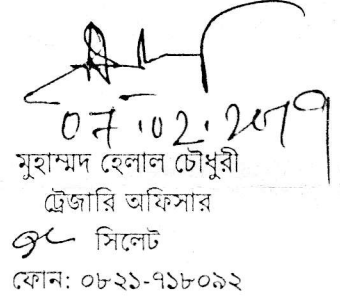 07.02.2019
মুহাম্মদ হেলাল চৌধুরী
ট্রেজারি অফিসার
সিলেট
ফোন: ০৮২১-৭১৮০৯২